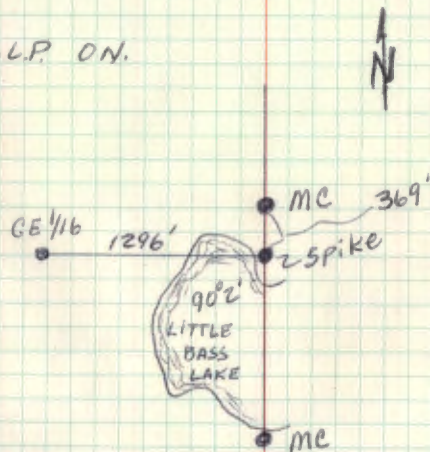 L.P. ON.
N
MC
369'
GE 1/16
1296'
Spike
90°2'
LITTLE
BASS
LAKE
MC